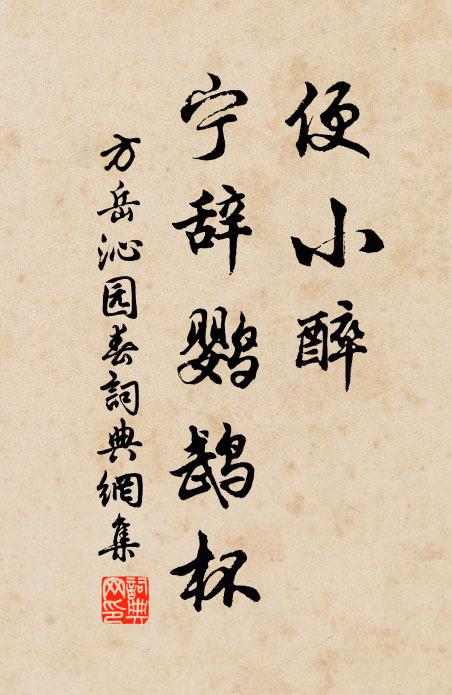 便小醉
宁辞鹦鹉杯
方岳沁园春詞典網集
詞典网印